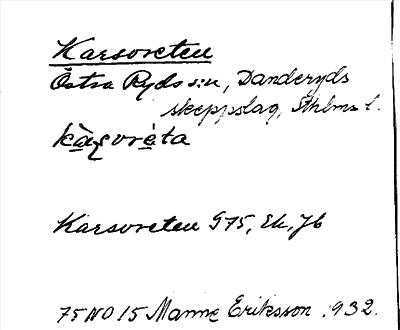 Karsvreten
Östra Ryds sn, Danderyds
skeppslag, Sthlms l.
kàʂvrèta
Karsvreten G75, Ek, Jb
75 NO 15 Manne Eriksson 1932.